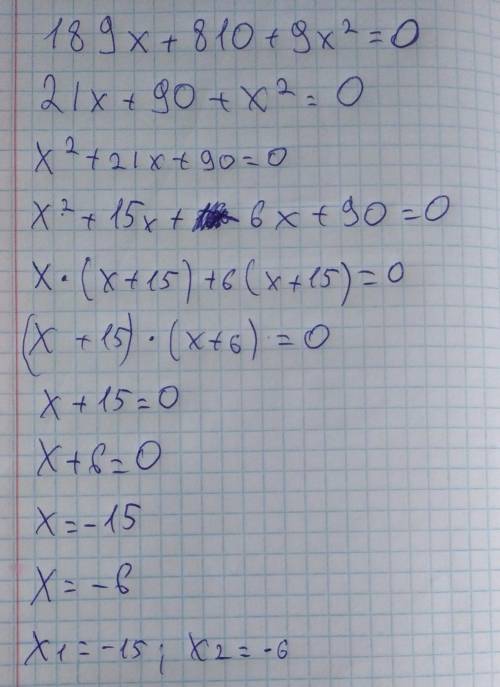 189x + 810 + 9x² = 0
21x + 90 + x² = 0
x² + 21x + 90 = 0
x² + 15x + 6x + 90 = 0
x · (x + 15) + 6 (x + 15) = 0
(x + 15) · (x + 6) = 0
x + 15 = 0
x + 6 = 0
x = -15
x = -6
x1 = -15; x2 = -6